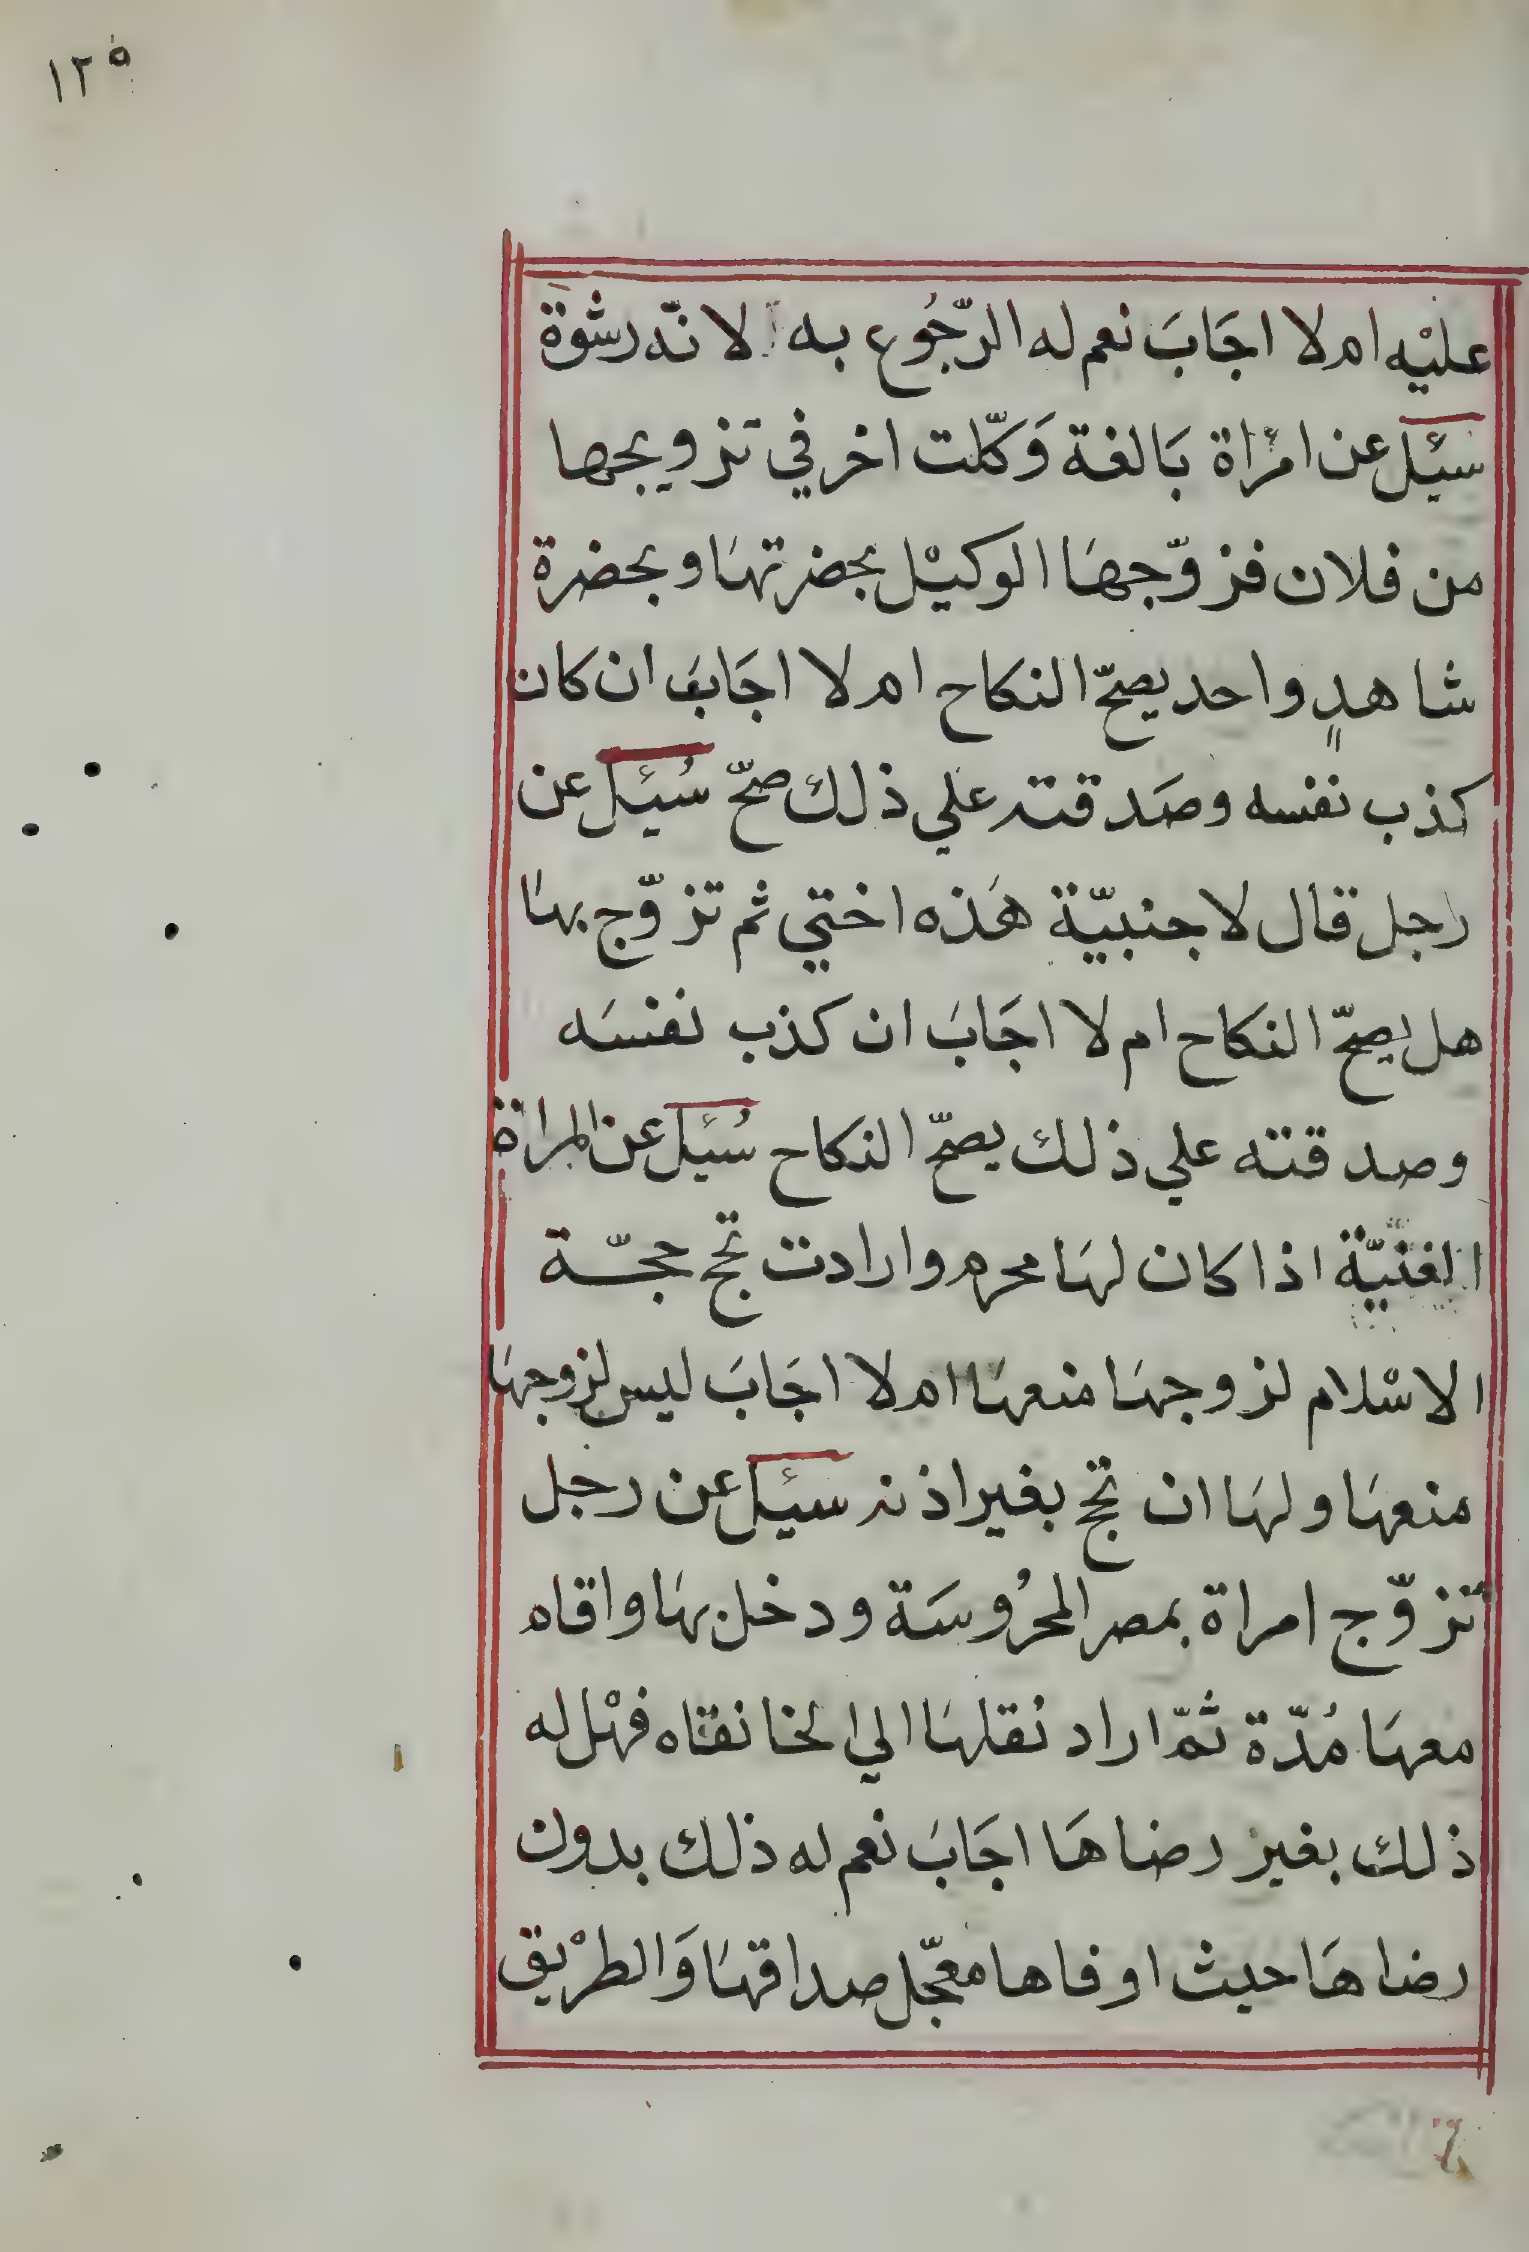 ١٢٥
عليْه ام لا اجَابَ نعم له الرّجُوع به لانّه رشوة
سئِل عن امرأة بَالغة وَكّلت اخر في تزويجها
من فلان فزوّجهَا الوكيْل بحضرتهَا وبحضرة
شاهدٍ واحد يصحّ النكاح ام لا اجَابَ ان كان
كذب نفسه وصَدقته علي ذلك صحّ سُئِل عن
رجل قال لاجنبيّة هَذه اختي ثم تزوّج بهَا
هل يصحّ النكاح ام لا اجَابَ ان كذب نفسَه
وصدقته علي ذلك يصحّ النكاح سُئِل عن المراة
الغنيّة اذا كان لهَا محرم وارادت تحج حجّة
الاسْلام لزوجهَا منعهَا ام لا اجَابَ ليس لزوجهَا
منعهَا ولهَا ان تحج بغير اذنه سئِل عن رجل
تزوّج امراة بمصر المحرُوسَة ودخل بهَا واقام
معهَا مُدّة ثمّ اراد نقلهَا الي الخانقاه فهْل له
ذلك بغير رضاهَا اجَابَ نعم له ذلك بدون
رضاهَا حيث اوفاها معجّل صداقهَا وَالطرْيق